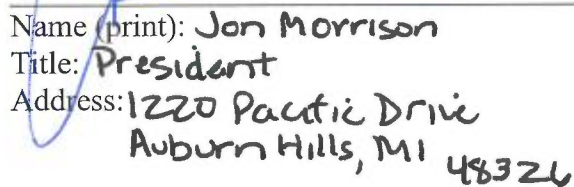 Name (print): Jon Morrison
Title: President
Address: 1220 Pacific Drive
Auburn Hills, MI 48326